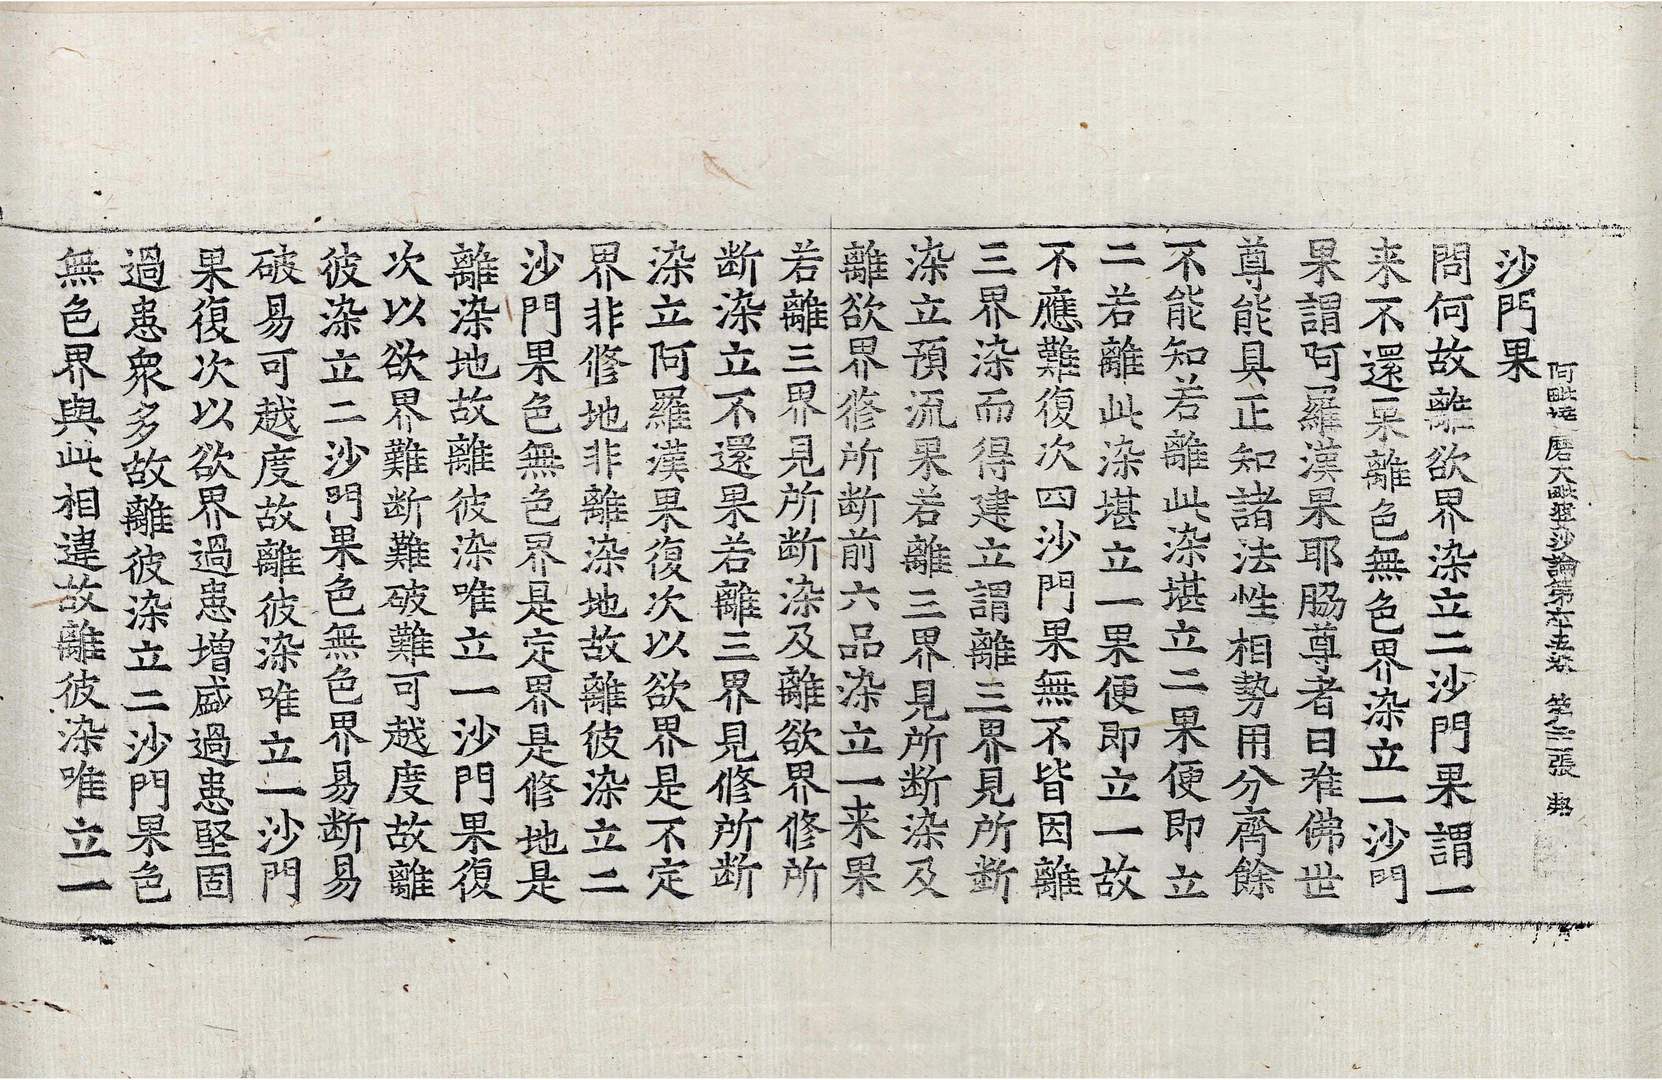 阿毗達磨大毗婆沙論第六十五卷 第三張 典
沙門果
問何故離欲界染立二沙門果謂一
来不還果離色無色界染立一沙門
果謂阿羅漢果耶脇尊者曰唯佛世
尊能具正知諸法性相勢用分齊餘
不能知若離此染堪立二果便即立
二若離此染堪立一果便即立一故
不應難復次四沙門果無不皆因離
三界染而得建立謂離三界見所断
染立預流果若離三界見所断染及
離欲界修所断前六品染立一来果
若離三界見所断染及離欲界修所
断染立不還果若離三界見修所断
染立阿羅漢果復次以欲界是不定
界非修地非離染地故離彼染立二
沙門果色無色界是定界是修地是
離染地故離彼染唯立一沙門果復
次以欲界難断難破難可越度故離
彼染立二沙門果色無色界易断易
破易可越度故離彼染唯立一沙門
果復次以欲界過患增盛過患堅固
過患衆多故離彼染立二沙門果色
無色界與此相違故離彼染唯立一